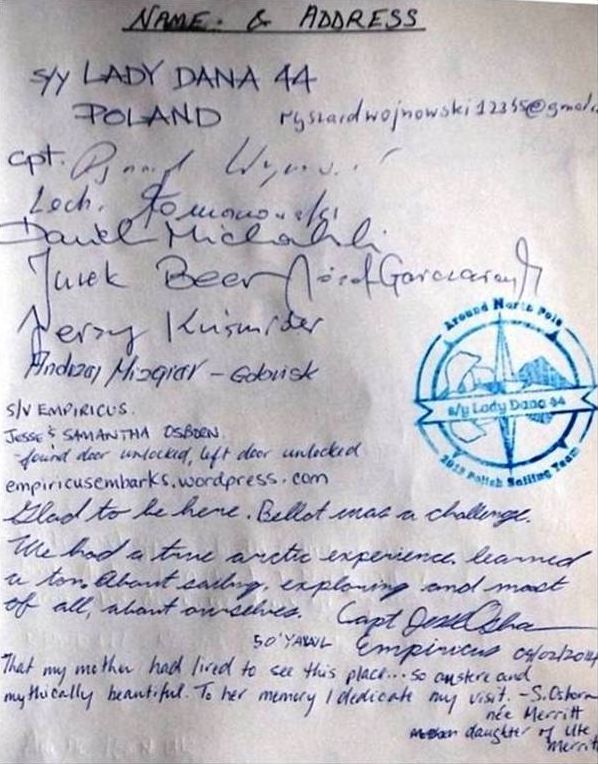 NAME & ADDRESS
s/y LADY DANA 44
POLAND ryszardwojnowski12345@gmail.
cpt.
Lech.
Daniel Michalski
Jurek Beer Józef
Jerzy
Andrzej Mizgier - Gdańsk
Around North Pole
s/y Lady Dana 44
2013 Polish Sailing Team
S/V EMPIRICUS.
JESSE & SAMANTHA OSBORN.
-found door unlocked, left door unlocked
empiricusembarks.wordpress.com
Glad to be here. Bellot was a challenge.
We had a true arctic experience. learned
a ton. About sailing, exploring and most
of all, about ourselves. Capt Jesse Osborn
50' YAWL Empiricus 09/02/2014
That my mother had lived to see this place...so austere and
mythically beautiful. To her memory I dedicate my visit. -S.Osborn
née Merritt
daughter of Ute
Merritt